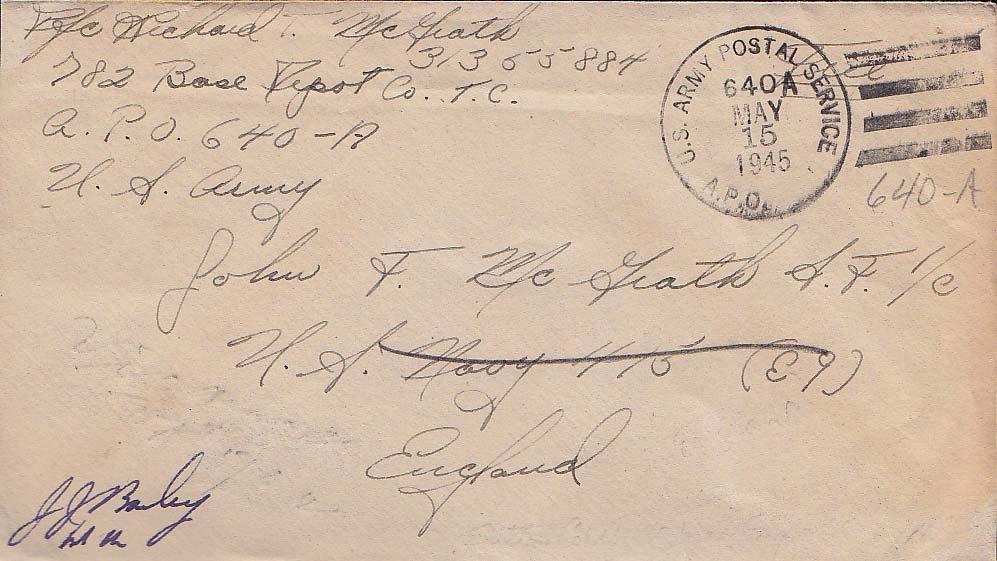 Pfc Richard T. McGrath
31365884
782 Base Depot Co. T.C.
A. P. O. 640-A
U. S. Army
U.S. ARMY POSTAL SERVICE
640A
MAY
15
1945
A.P.O.
Free
640-A
John F. McGrath S.F. 1/c
U. S. Navy 115 (E9)
England